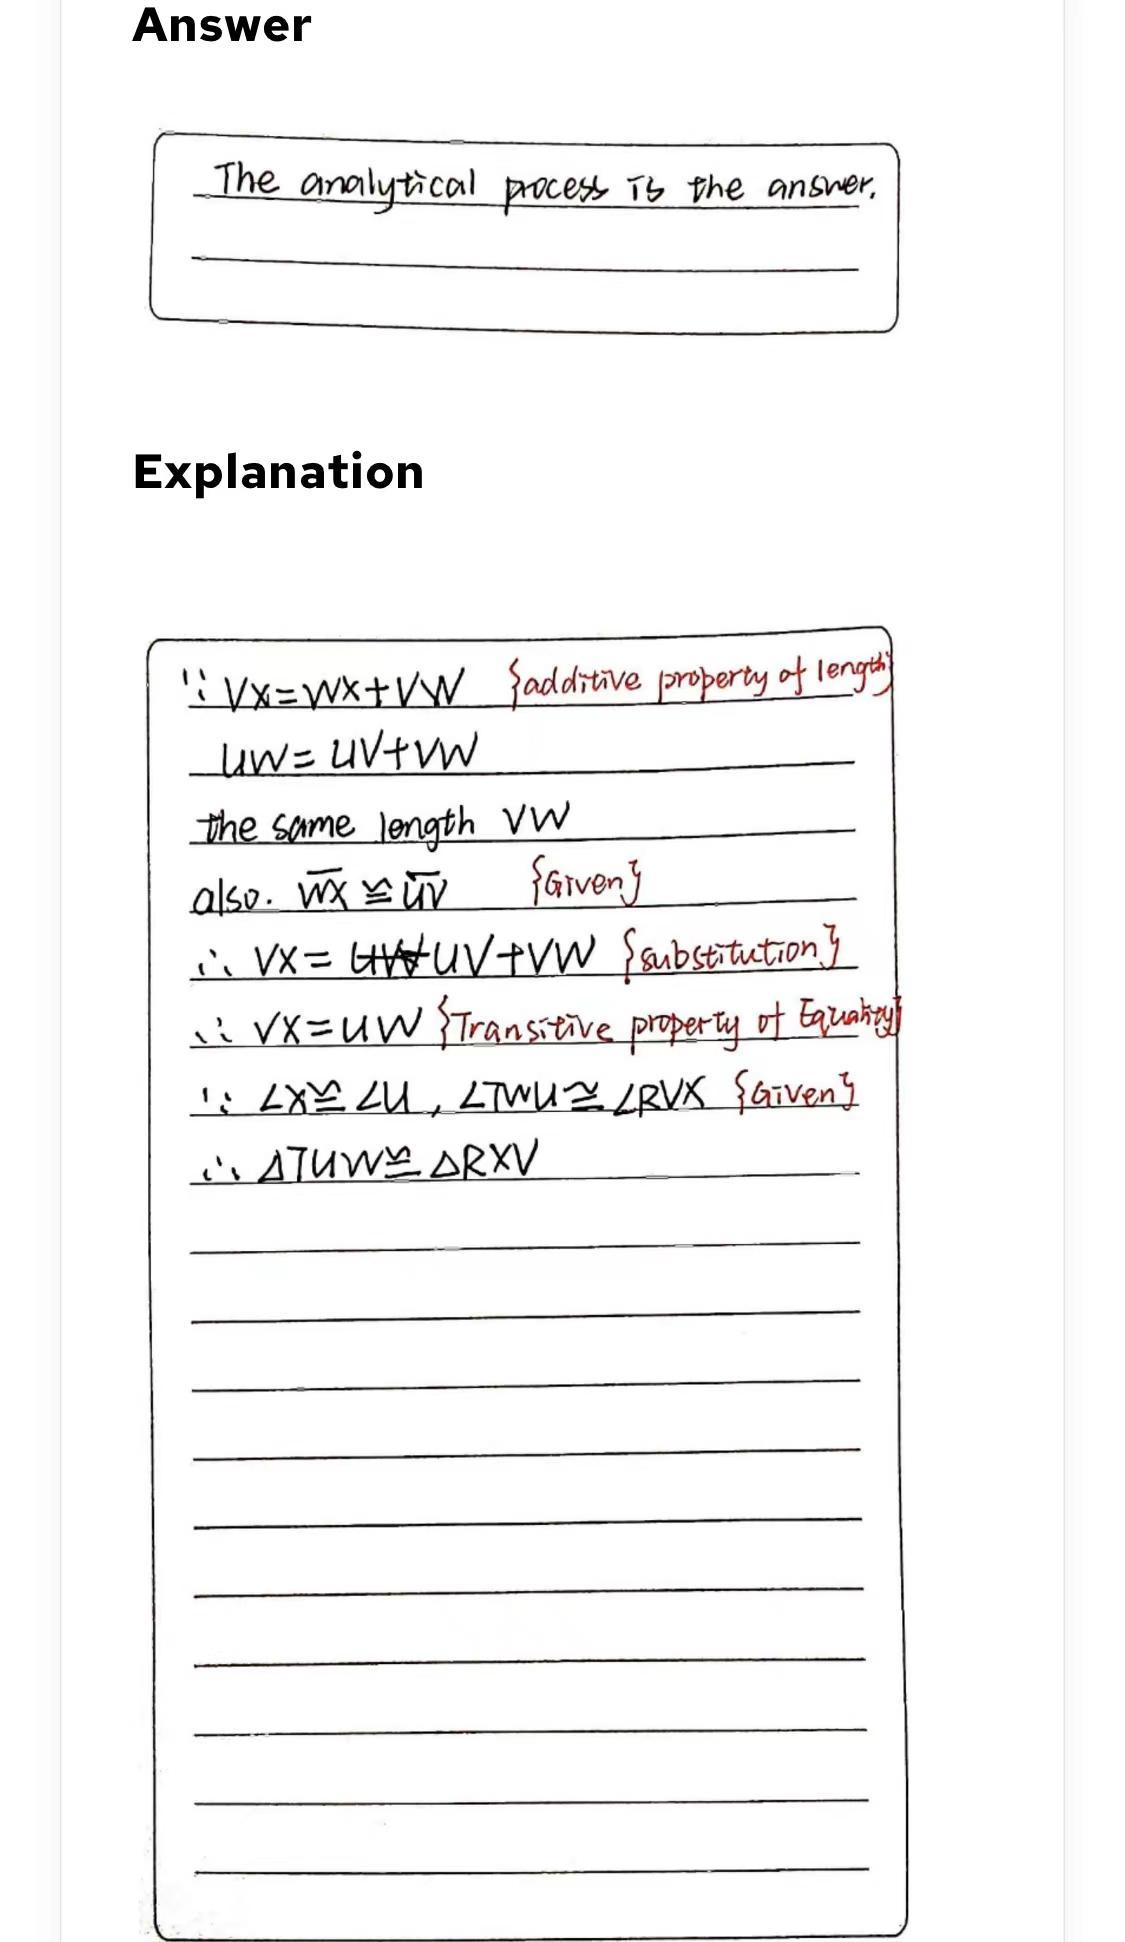 Answer
The analytical process is the answer.
Explanation
∵ VX=WX+VW {additive property of length}
UW=UV+VW
the same length VW
also. W̅X̅ ≅ U̅V̅ {Given}
∴ VX= UV+VW {substitution}
∴ VX=UW {Transitive property of Equality}
∵ ∠X≅∠U, ∠TWU≅∠RVX {Given}
∴ △TUW≅△RXV